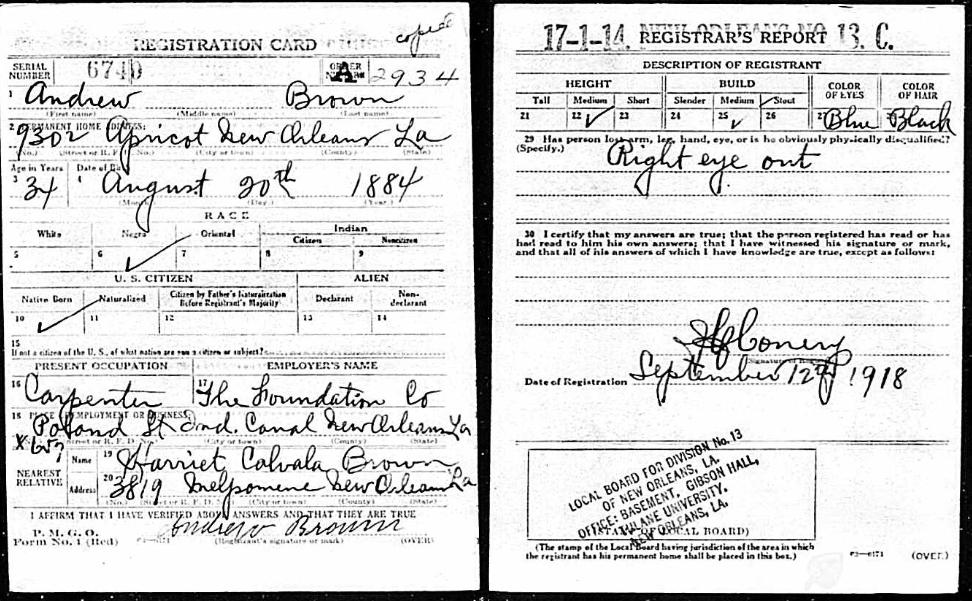 copied
REGISTRATION CARD
SERIAL NUMBER 6740 ORDER NUMBER A 2934
1 Andrew Brown
(First name) (Middle name) (Last name)
2 PERMANENT HOME ADDRESS:
9302 Apricot New Orleans La
(No.) (Street or R. F. D. No.) (City or town) (County) (State)
Age in Years Date of Birth
3 34 4 August 20th 1884
(Month.) (Day.) (Year.)
RACE
White Negro Oriental Indian
Citizen Noncitizen
5 6 ✓ 7 8 9
U. S. CITIZEN ALIEN
Native Born Naturalized Citizen by Father's Naturalization Before Registrant's Majority Declarant Non-declarant
10 ✓ 11 12 13 14
15
If not a citizen of the U. S., of what nation are you a citizen or subject?
PRESENT OCCUPATION EMPLOYER'S NAME
16 Carpenter 17 The Foundation Co
18 PLACE OF EMPLOYMENT OR BUSINESS:
Poland St Ind. Canal New Orleans La
(No.) (Street or R. F. D. No.) (City or town) (County) (State)
NEAREST RELATIVE
Name 19 Harriet Calvala Brown
Address 20 3819 Melpomene New Orleans La
(No.) (Street or R. F. D. No.) (City or town) (County) (State)
I AFFIRM THAT I HAVE VERIFIED ABOVE ANSWERS AND THAT THEY ARE TRUE
P. M. G. O.
Form No. 1 (Red) Andrew Brown
(Registrant's signature or mark) (OVER)
17-1-14. NEW ORLEANS NO. 13. C.
REGISTRAR'S REPORT
DESCRIPTION OF REGISTRANT
HEIGHT BUILD COLOR OF EYES COLOR OF HAIR
Tall Medium Short Slender Medium Stout
21 22 ✓ 23 24 25 ✓ 26 27 Blue Black
29 Has person lost arm, leg, hand, eye, or is he obviously physically disqualified?
(Specify.) Right eye out
30 I certify that my answers are true; that the person registered has read or has
had read to him his own answers; that I have witnessed his signature or mark,
and that all of his answers of which I have knowledge are true, except as follows:
Conery
Date of Registration September 12th 1918
LOCAL BOARD FOR DIVISION No. 13
OF NEW ORLEANS, LA.
OFFICE: BASEMENT, GIBSON HALL,
TULANE UNIVERSITY,
NEW ORLEANS, LA.
(STAMP OF LOCAL BOARD)
(The stamp of the Local Board having jurisdiction of the area in which
the registrant has his permanent home shall be placed in this box.)
(OVER)